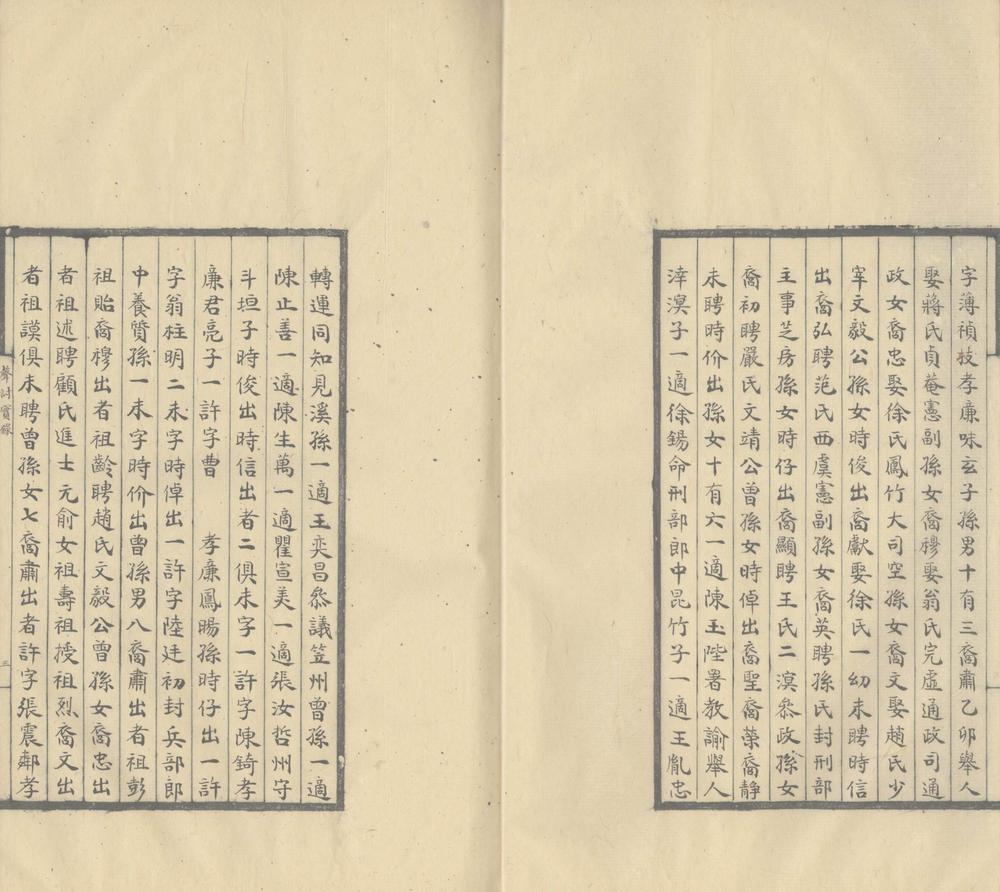 字薄禎枝孝廉味玄子孫男十有三裔肅乙卯舉人
娶蔣氏貞菴憲副孫女裔穆娶翁氏完虛通政司通
政女裔忠娶徐氏鳳竹大司空孫女裔文娶趙氏少
宰文毅公孫女時俊出裔獻娶徐氏一幼未聘時信
出裔弘聘范氏西虞憲副孫女裔英聘孫氏封刑部
主事芝房孫女時仔出裔顯聘王氏二溟叅政孫女
裔初聘嚴氏文靖公曾孫女時倬出裔聖裔榮裔靜
未聘時价出孫女十有六一適陳玉陛署教諭舉人
滓溟子一適徐錫命刑部郎中昆竹子一適王胤忠
轉運同知見溪孫一適王奕昌叅議笠州曾孫一適
陳止善一適陳生萬一適瞿宣美一適張汝哲州守
斗垣子時俊出時信出者二俱未字一許字陳錡孝
廉君亮子一許字曹 孝廉鳳暘孫時仔出一許
字翁柱明二未字時倬出一許字陸廷初封兵部郎
中養贊孫一未字時价出曾孫男八裔肅出者祖彭
祖貽裔穆出者祖齡聘趙氏文毅公曾孫女裔忠出
者祖述聘顧氏進士元俞女祖壽祖授祖烈裔文出
者祖謨俱未聘曾孫女七裔肅出者許字張震鄰孝
討實錄
三